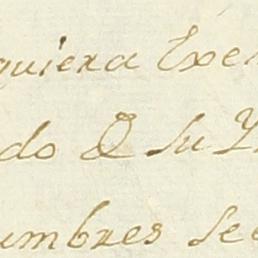 quiera Exe
do D Su Y
umbres se